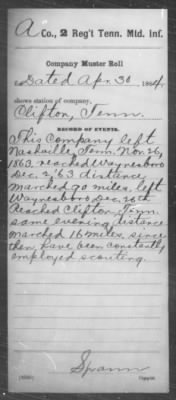 A Co., 2 Reg't Tenn. Mtd. Inf.
Company Muster Roll
Dated Apr. 30 1864,
shows station of company,
Clifton, Tenn.
RECORD OF EVENTS.
This Company left
Nashville, Tenn. Nov. 26,
1863, reached Waynesboro
Dec. 2, '63 distance
marched 90 miles, left
Waynesboro Dec. 26th
Reached Clifton, Tenn.
same evening, distance
marched 16 miles, since
then, have been constantly
employed scouting.
Spann
Copyist.